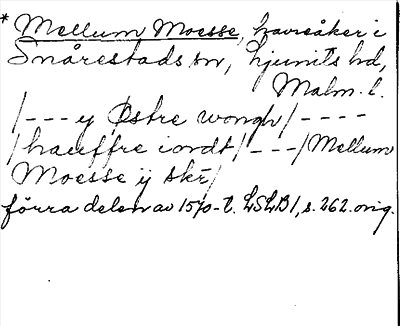 * Mellum Moesse, havreåker i
Snårestads sn, Ljunits hd,
Malm. l.
/--- y Østre wongh/ ----
/hauffre iordt/ ---/Mellum
Moesse ij skē/
förra delen av 1570-t. LSLB1, s. 262. orig.